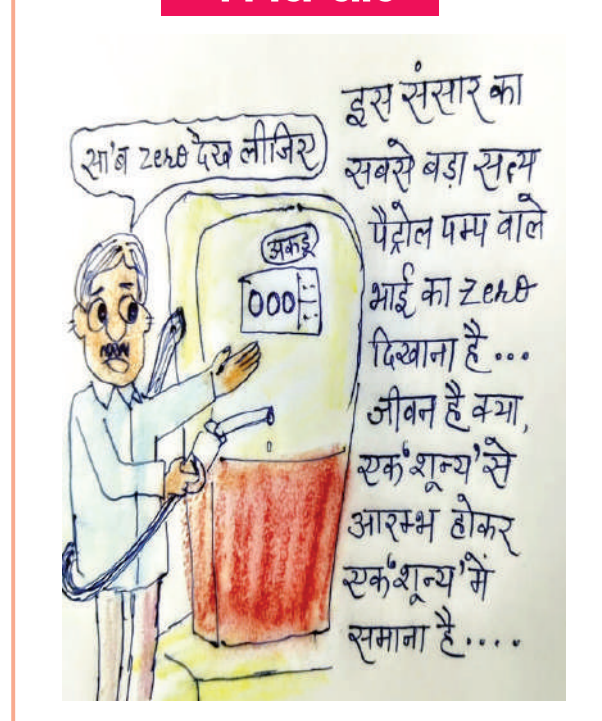 सा'ब zero देख लीजिए
अकड़
000
इस संसार का
सबसे बड़ा सत्य
पैट्रोल पम्प वाले
भाई का zero
दिखाना है...
जीवन है क्या,
एक 'शून्य' से
आरम्भ होकर
एक 'शून्य' में
समाना है....